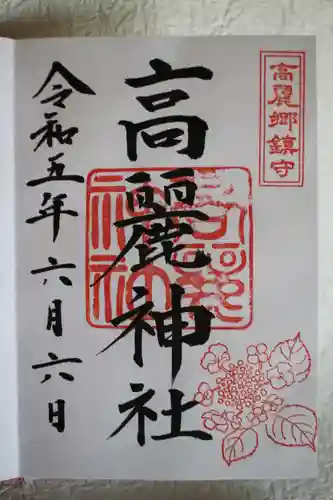 高麗郷鎮守
高麗神社
令和五年六月六日